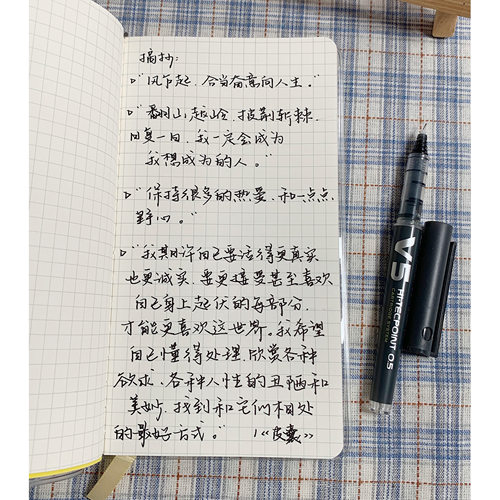 摘抄:
▷"风乍起.合当奋意向人生。"
▷"翻山越岭.披荆斩棘.
日复一日.我一定会成为
我想成为的人。"
▷"保持很多的热爱.和一点点
野心。"
▷"我期许自己要活得更真实
也更诚实.要更接受甚至喜欢
自己身上起伏的每部分.
才能更喜欢这世界。我希望
自己懂得处理.欣赏各种
欲求.各种人性的丑陋和
美妙.找到和它们相处
的最好方式。" 《皮囊》
V5
HI-TECPOINT 0.5